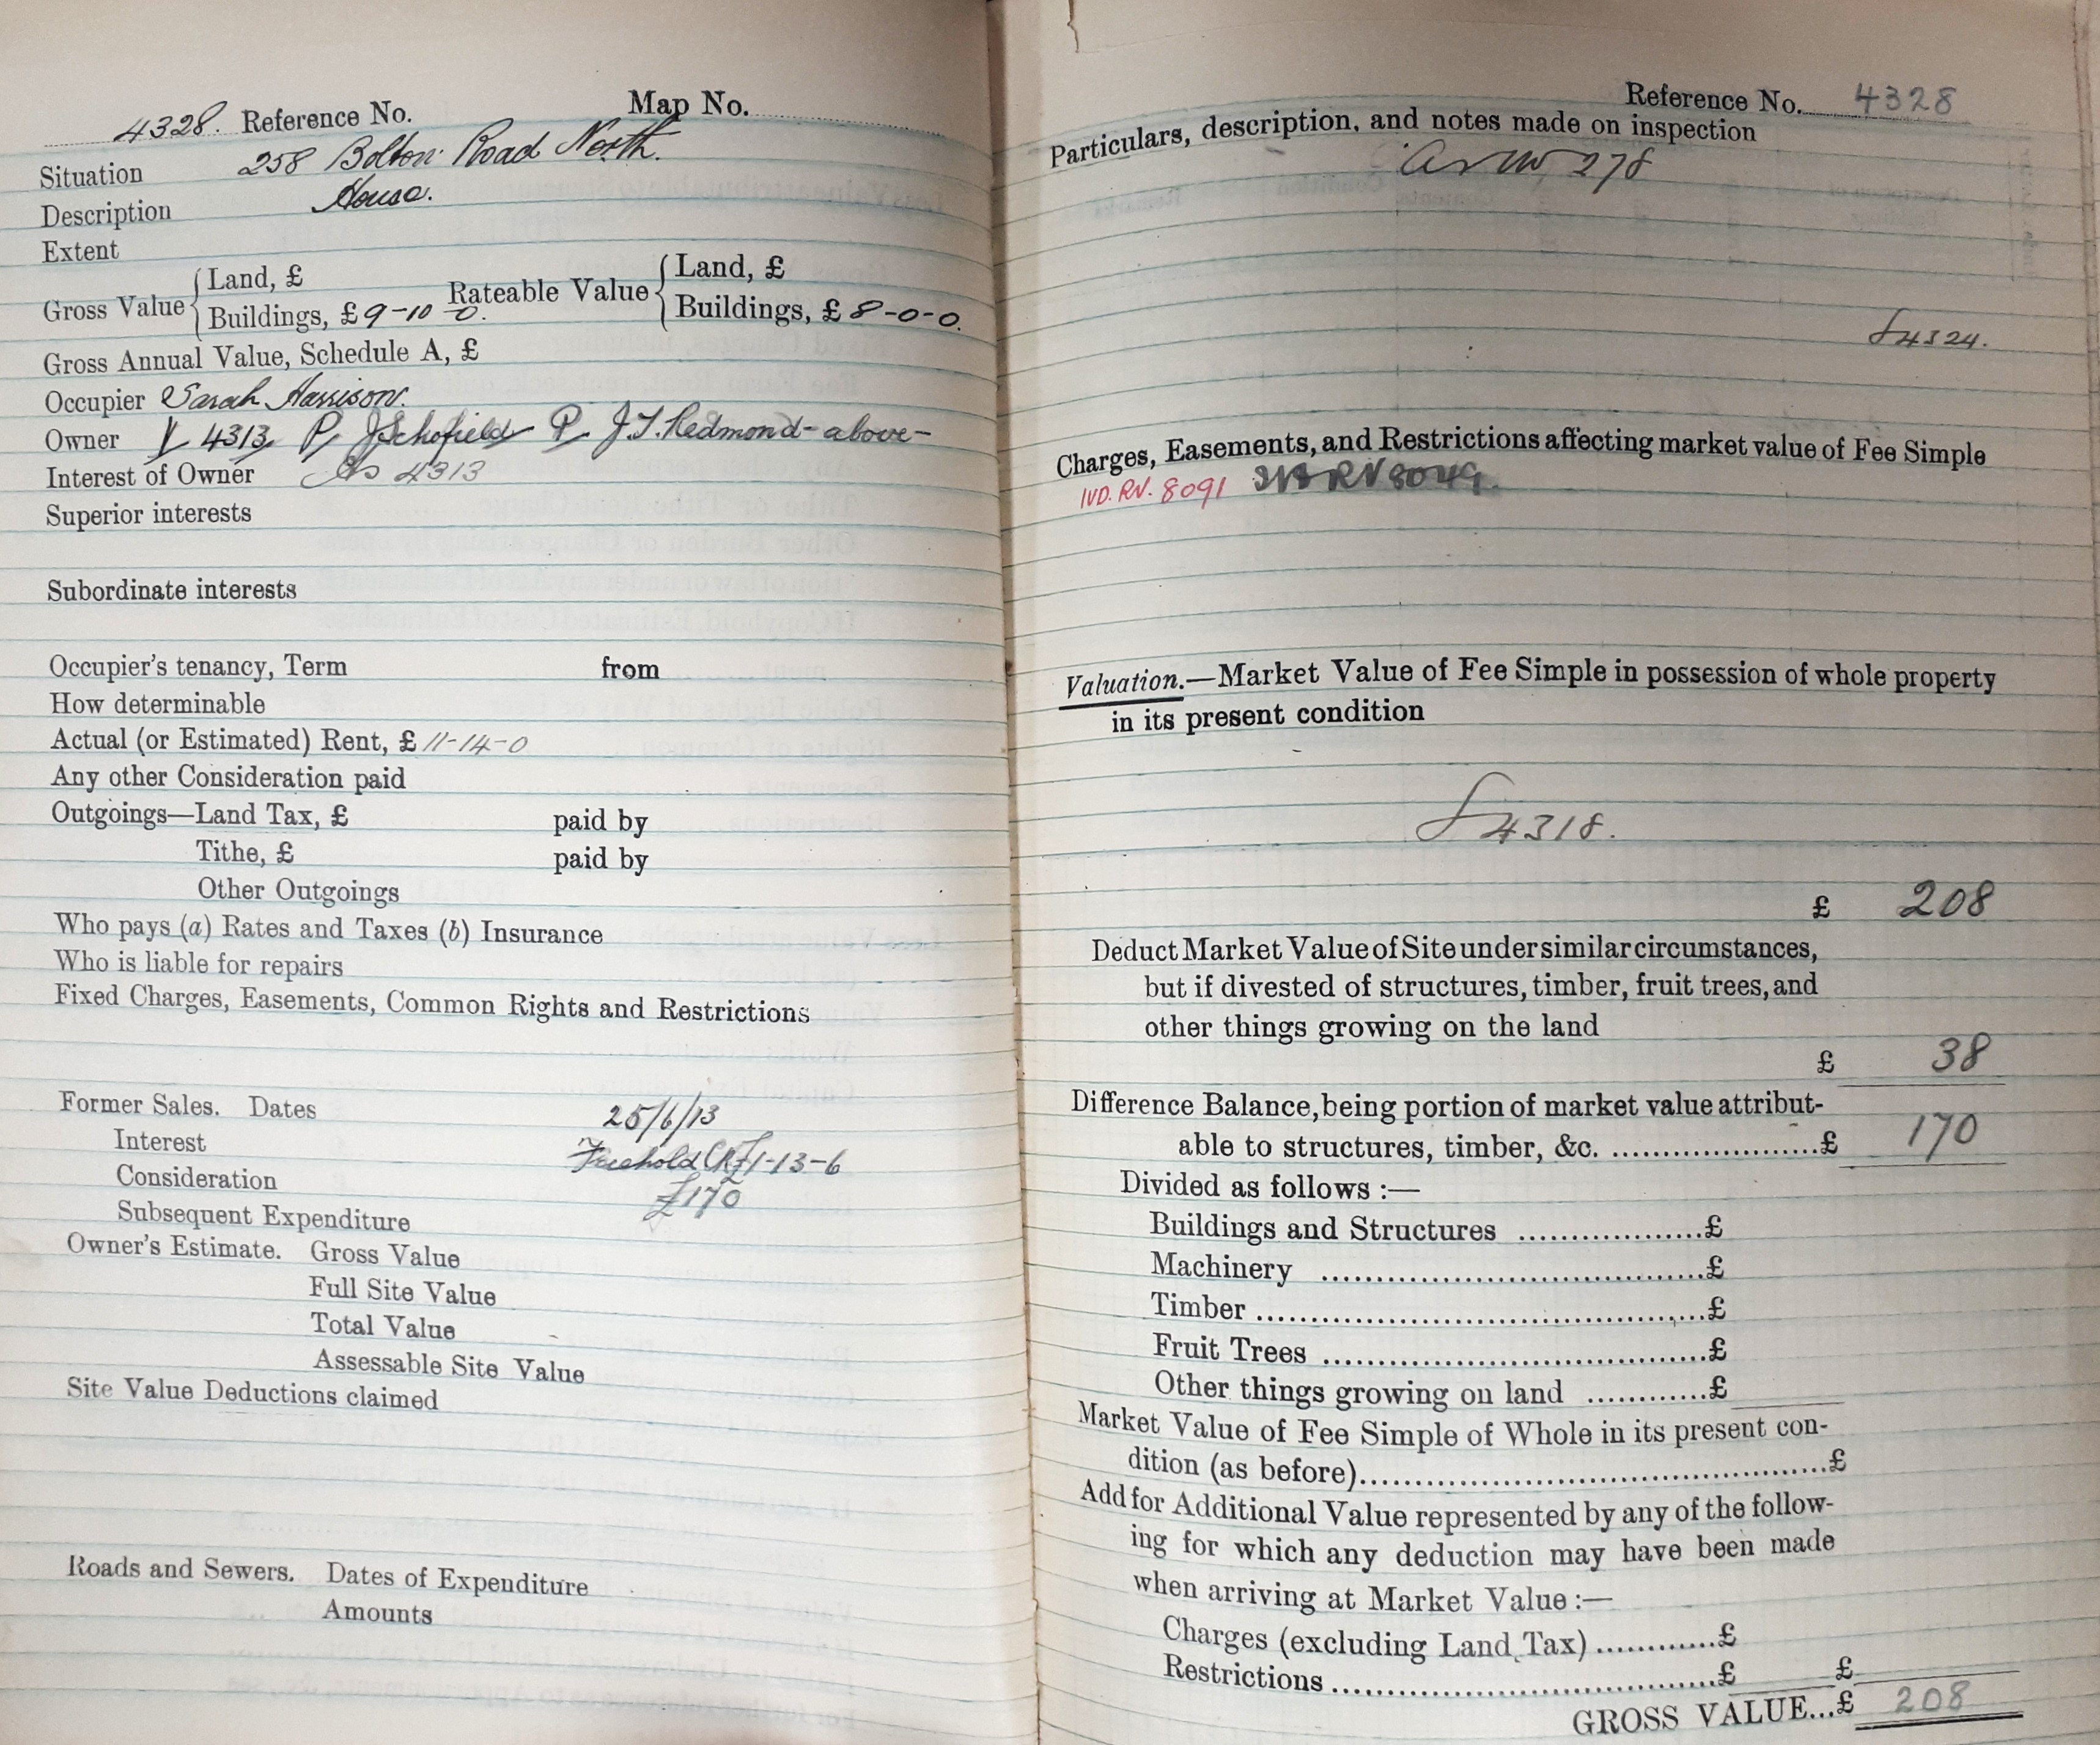 4328. Reference No. Map No.
Situation 258 Bolton Road North.
Description House.
Extent
Gross Value { Land, £ Rateable Value { Land, £
Buildings, £ 9-10-0. Buildings, £ 8-0-0.
Gross Annual Value, Schedule A, £
Occupier Sarah Harrison.
Owner 4313, P. J Schofield P. J.T. Redmond - above -
Interest of Owner As 4313
Superior interests
Subordinate interests
Occupier's tenancy, Term from
How determinable
Actual (or Estimated) Rent, £ 11-14-0
Any other Consideration paid
Outgoings—Land Tax, £ paid by
Tithe, £ paid by
Other Outgoings
Who pays (a) Rates and Taxes (b) Insurance
Who is liable for repairs
Fixed Charges, Easements, Common Rights and Restrictions
Former Sales. Dates 25/6/13
Interest Freehold CR £1-13-6
Consideration £170
Subsequent Expenditure
Owner's Estimate. Gross Value
Full Site Value
Total Value
Assessable Site Value
Site Value Deductions claimed
Roads and Sewers. Dates of Expenditure
Amounts
Reference No. 4328
Particulars, description, and notes made on inspection
as no 278
4324.
Charges, Easements, and Restrictions affecting market value of Fee Simple
IVD. RV. 8091 RV 8049.
Valuation.—Market Value of Fee Simple in possession of whole property
in its present condition
4318.
£ 208
Deduct Market Value of Site under similar circumstances,
but if divested of structures, timber, fruit trees, and
other things growing on the land
£ 38
Difference Balance, being portion of market value attribut-
able to structures, timber, &c. ....................£ 170
Divided as follows :—
Buildings and Structures ..................£
Machinery ....................................£
Timber ..........................................£
Fruit Trees ....................................£
Other things growing on land ............£
Market Value of Fee Simple of Whole in its present con-
dition (as before)..............................................£
Add for Additional Value represented by any of the follow-
ing for which any deduction may have been made
when arriving at Market Value :—
Charges (excluding Land Tax) ............£
Restrictions ....................................£ £
GROSS VALUE...£ 208